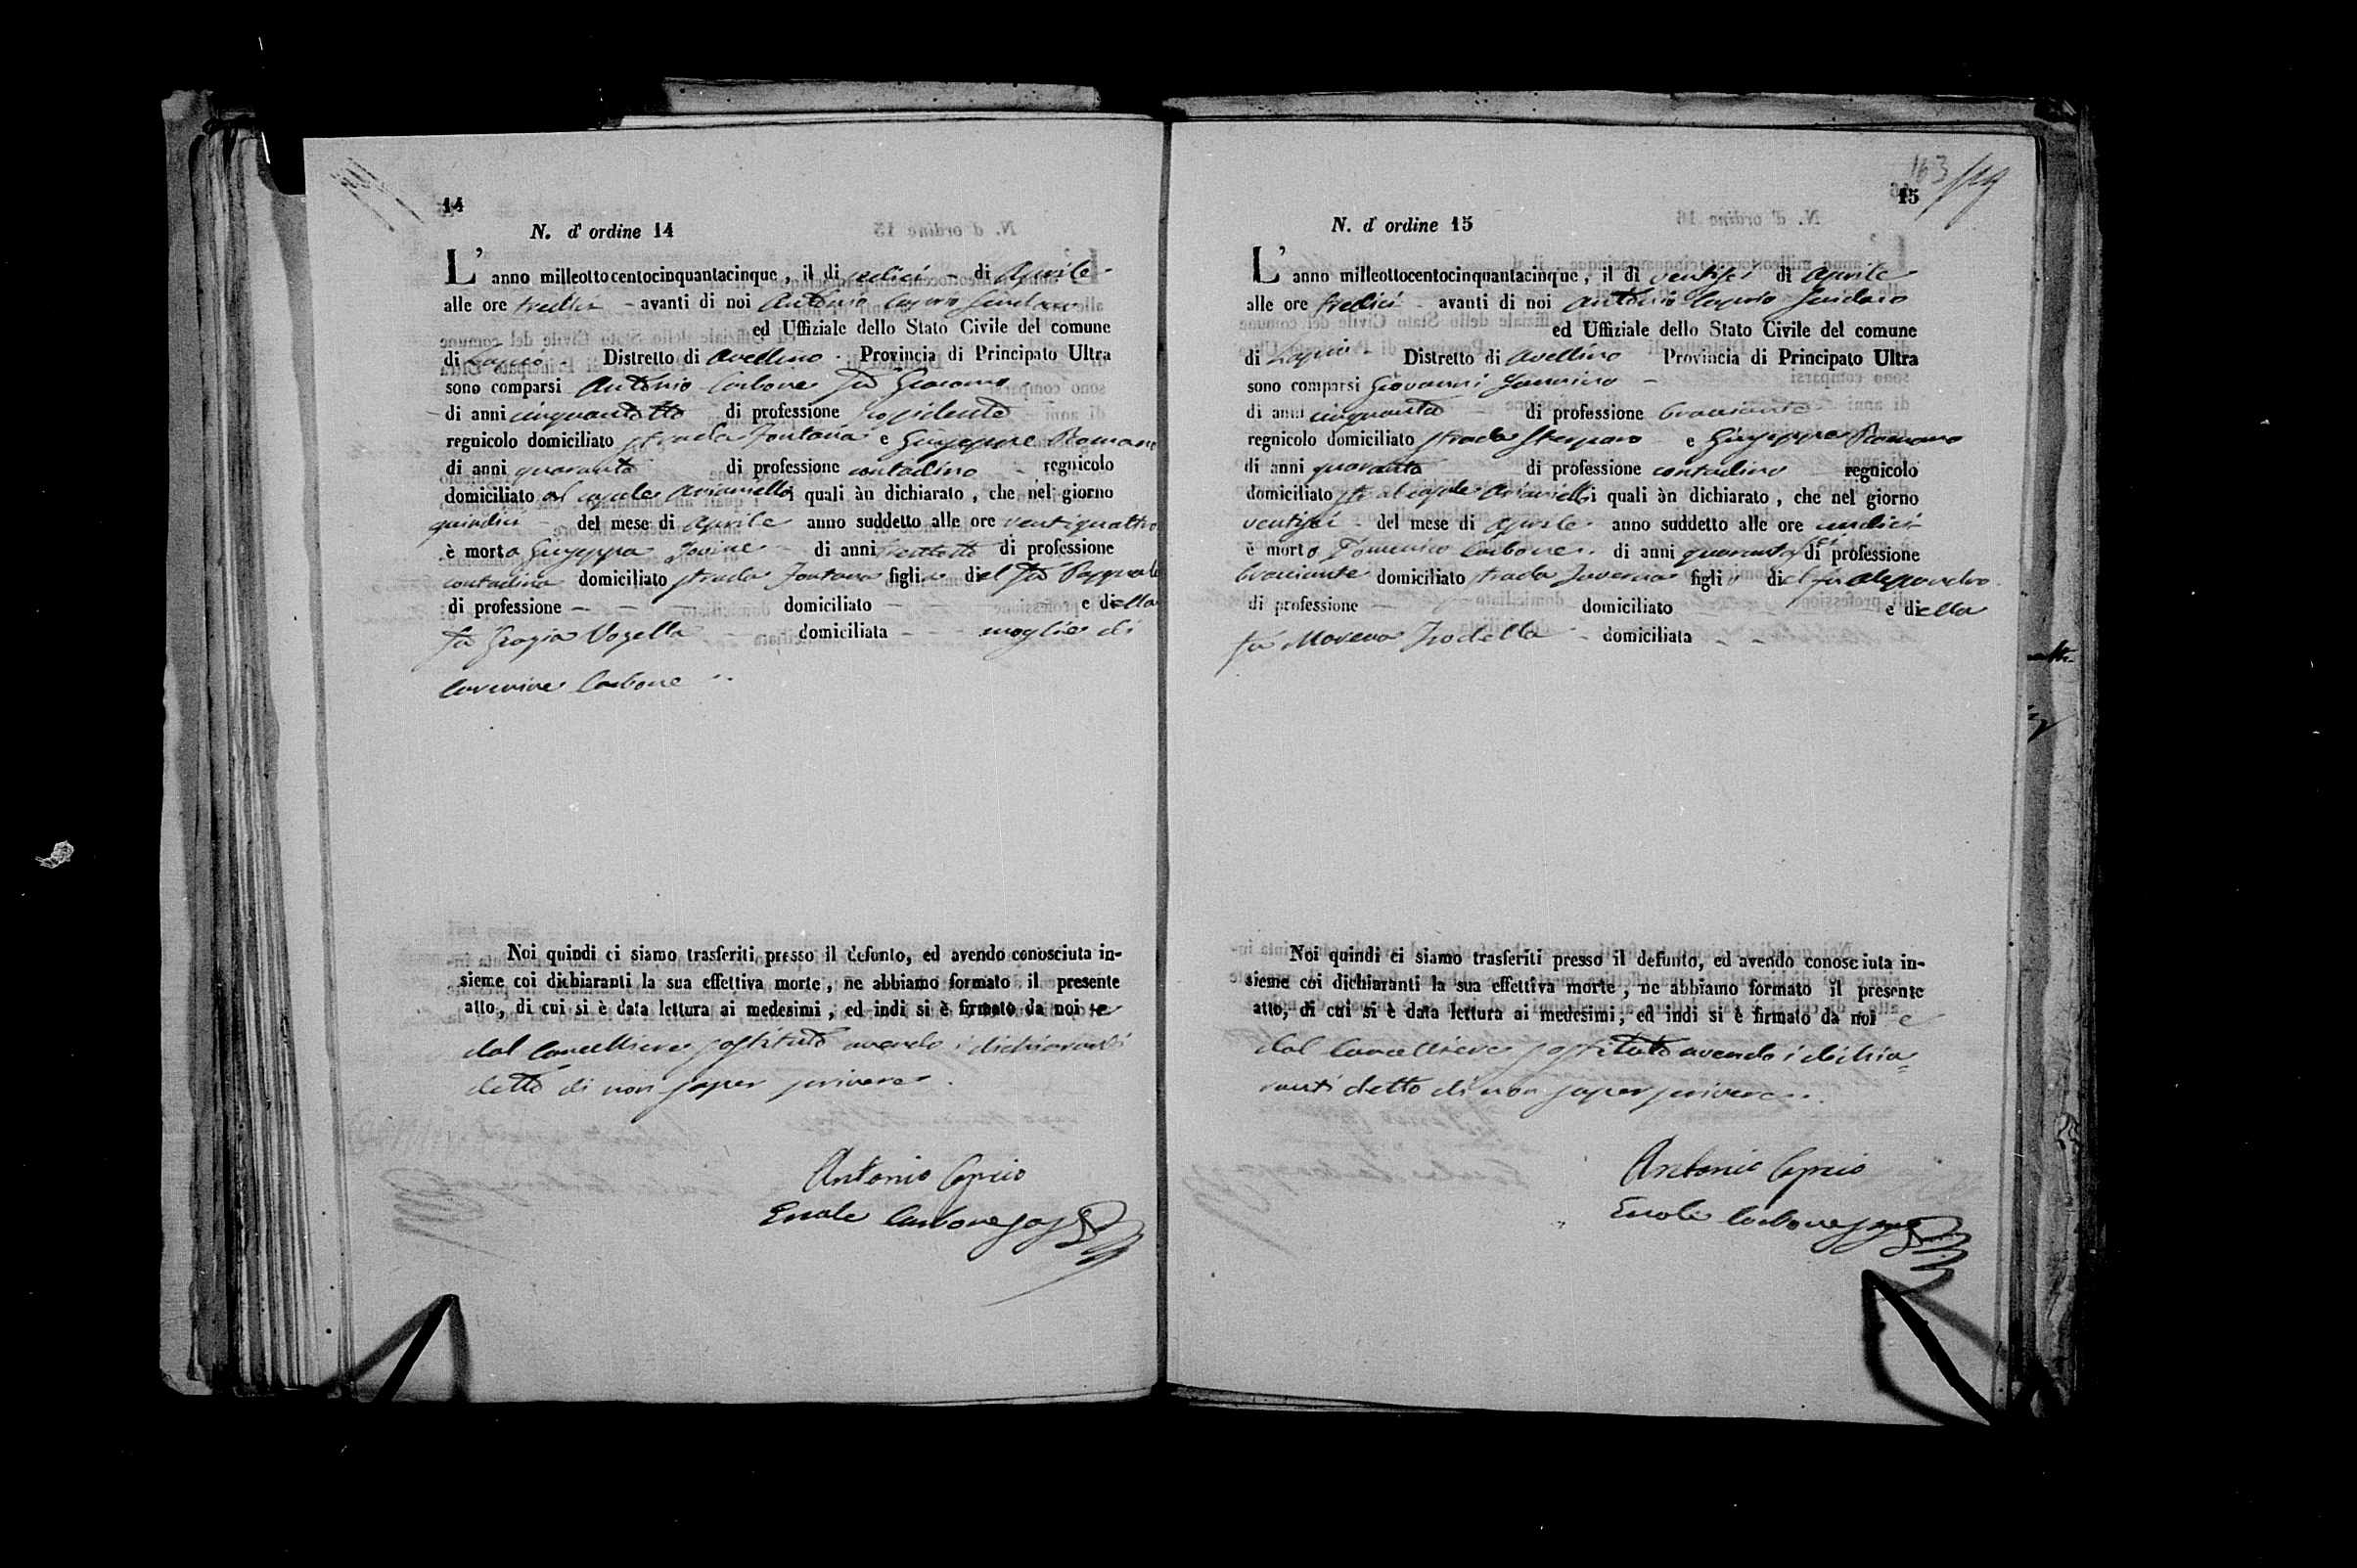 14
N. d' ordine 14
L' anno milleottocentocinquantacinque, il di sedici - di Aprile
alle ore tredici - avanti di noi Antonio Caprio Sindaco
ed Uffiziale dello Stato Civile del comune
di Lapio - Distretto di Avellino - Provincia di Principato Ultra
sono comparsi Antonio Carbone fu Giacomo
- di anni cinquantotto di professione
regnicolo domiciliato strada Fontana e Giuseppe Romano
di anni quaranta di professione contadino - regnicolo
domiciliato al casale Arianiello i quali àn dichiarato, che nel giorno
quindici - del mese di Aprile anno suddetto alle ore ventiquattro
è morta Giuseppa Iovine - di anni trentotto di professione
contadina domiciliato strada Fontana figlia del fu Pasquale
di professione - - domiciliato - - e della
fu Grazia Vozella - domiciliata - - moglie di
Carbone
Noi quindi ci siamo trasferiti presso il defunto, ed avendo conosciuta in-
sieme coi dichiaranti la sua effettiva morte, ne abbiamo formato il presente
atto, di cui si è data lettura ai medesimi, ed indi si è firmato da noi e
dal Cancelliere sostituto avendo i dichiaranti
detto di non saper scrivere.
Antonio Caprio
Ercole Carbone sost
163
15
N. d' ordine 15
L' anno milleottocentocinquantacinque, il di ventisei di Aprile
alle ore tredici - avanti di noi Antonio Caprio Sindaco
ed Uffiziale dello Stato Civile del comune
di Lapio - Distretto di Avellino Provincia di Principato Ultra
sono comparsi Giovanni Iannino -
di anni cinquanta - di professione bracciante
regnicolo domiciliato strada e Giuseppe Romano
di anni quaranta di professione contadino regnicolo
domiciliato al casale Arianiello i quali àn dichiarato, che nel giorno
ventisei - del mese di Aprile anno suddetto alle ore undici
è morto Domenico Carbone. di anni quarantasei di professione
bracciante domiciliato strada Taverna figlio del fu Alessandro
di professione - domiciliato e della
fu Moscena - domiciliata - -
Noi quindi ci siamo trasferiti presso il defunto, ed avendo conosciuta in-
sieme coi dichiaranti la sua effettiva morte, ne abbiamo formato il presente
atto, di cui si è data lettura ai medesimi, ed indi si è firmato da noi e
dal Cancelliere sostituto avendo i dichia=
ranti detto di non saper scrivere.
Antonio Caprio
Ercole Carbone sost